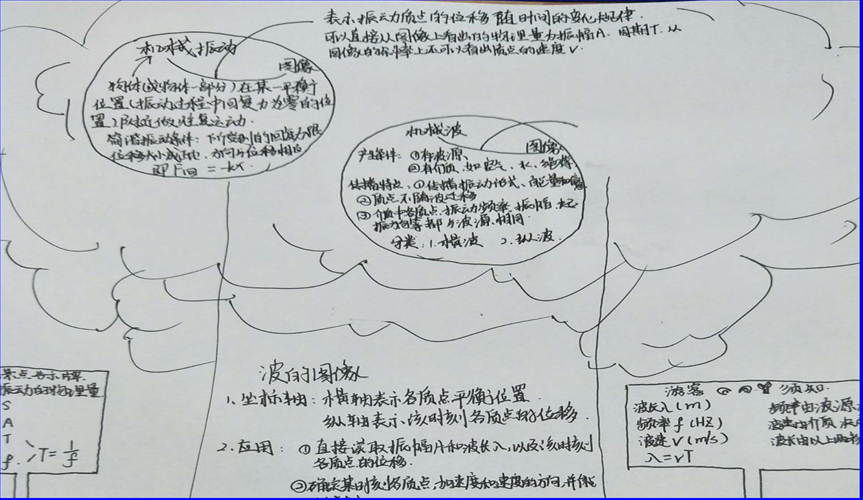 表示振动质点的位移随时间的变化规律.
可以直接从图像上看出的物理量为振幅A、周期T.从
图像的斜率上还可以看出质点的速度v.
机械振动
图像
物体(或物体一部分)在某一平衡
位置(振动过程中回复力为零的位
置)附近做往复运动.
简谐振动条件:
位移大小成正比,方向与位移相反
即F回=-kx.
机械波
图像
产生条件:①有波源、
②有介质,如空气、水、绳等
传播特点:①传播振动形式、能量和信息
②质点不随波迁移
③介质中各质点振动频率、振幅、起
振方向等都与波源相同.
分类:1.横波 2.纵波.
波的图像
1、坐标轴:横轴表示各质点平衡位置.
纵轴表示该时刻各质点的位移.
2.应用:①直接读取振幅A和波长λ,以及该时刻
各质点的位移.
②确定某时刻各质点加速度和速度的方向,并能
景点告示牌
振动的物理量
S
A
T
f
T=1/f
游客 须知
波长λ(m)
频率f(HZ)
波速v(m/s)
λ=vT
频率由波源
波速由介质
波长由以上两